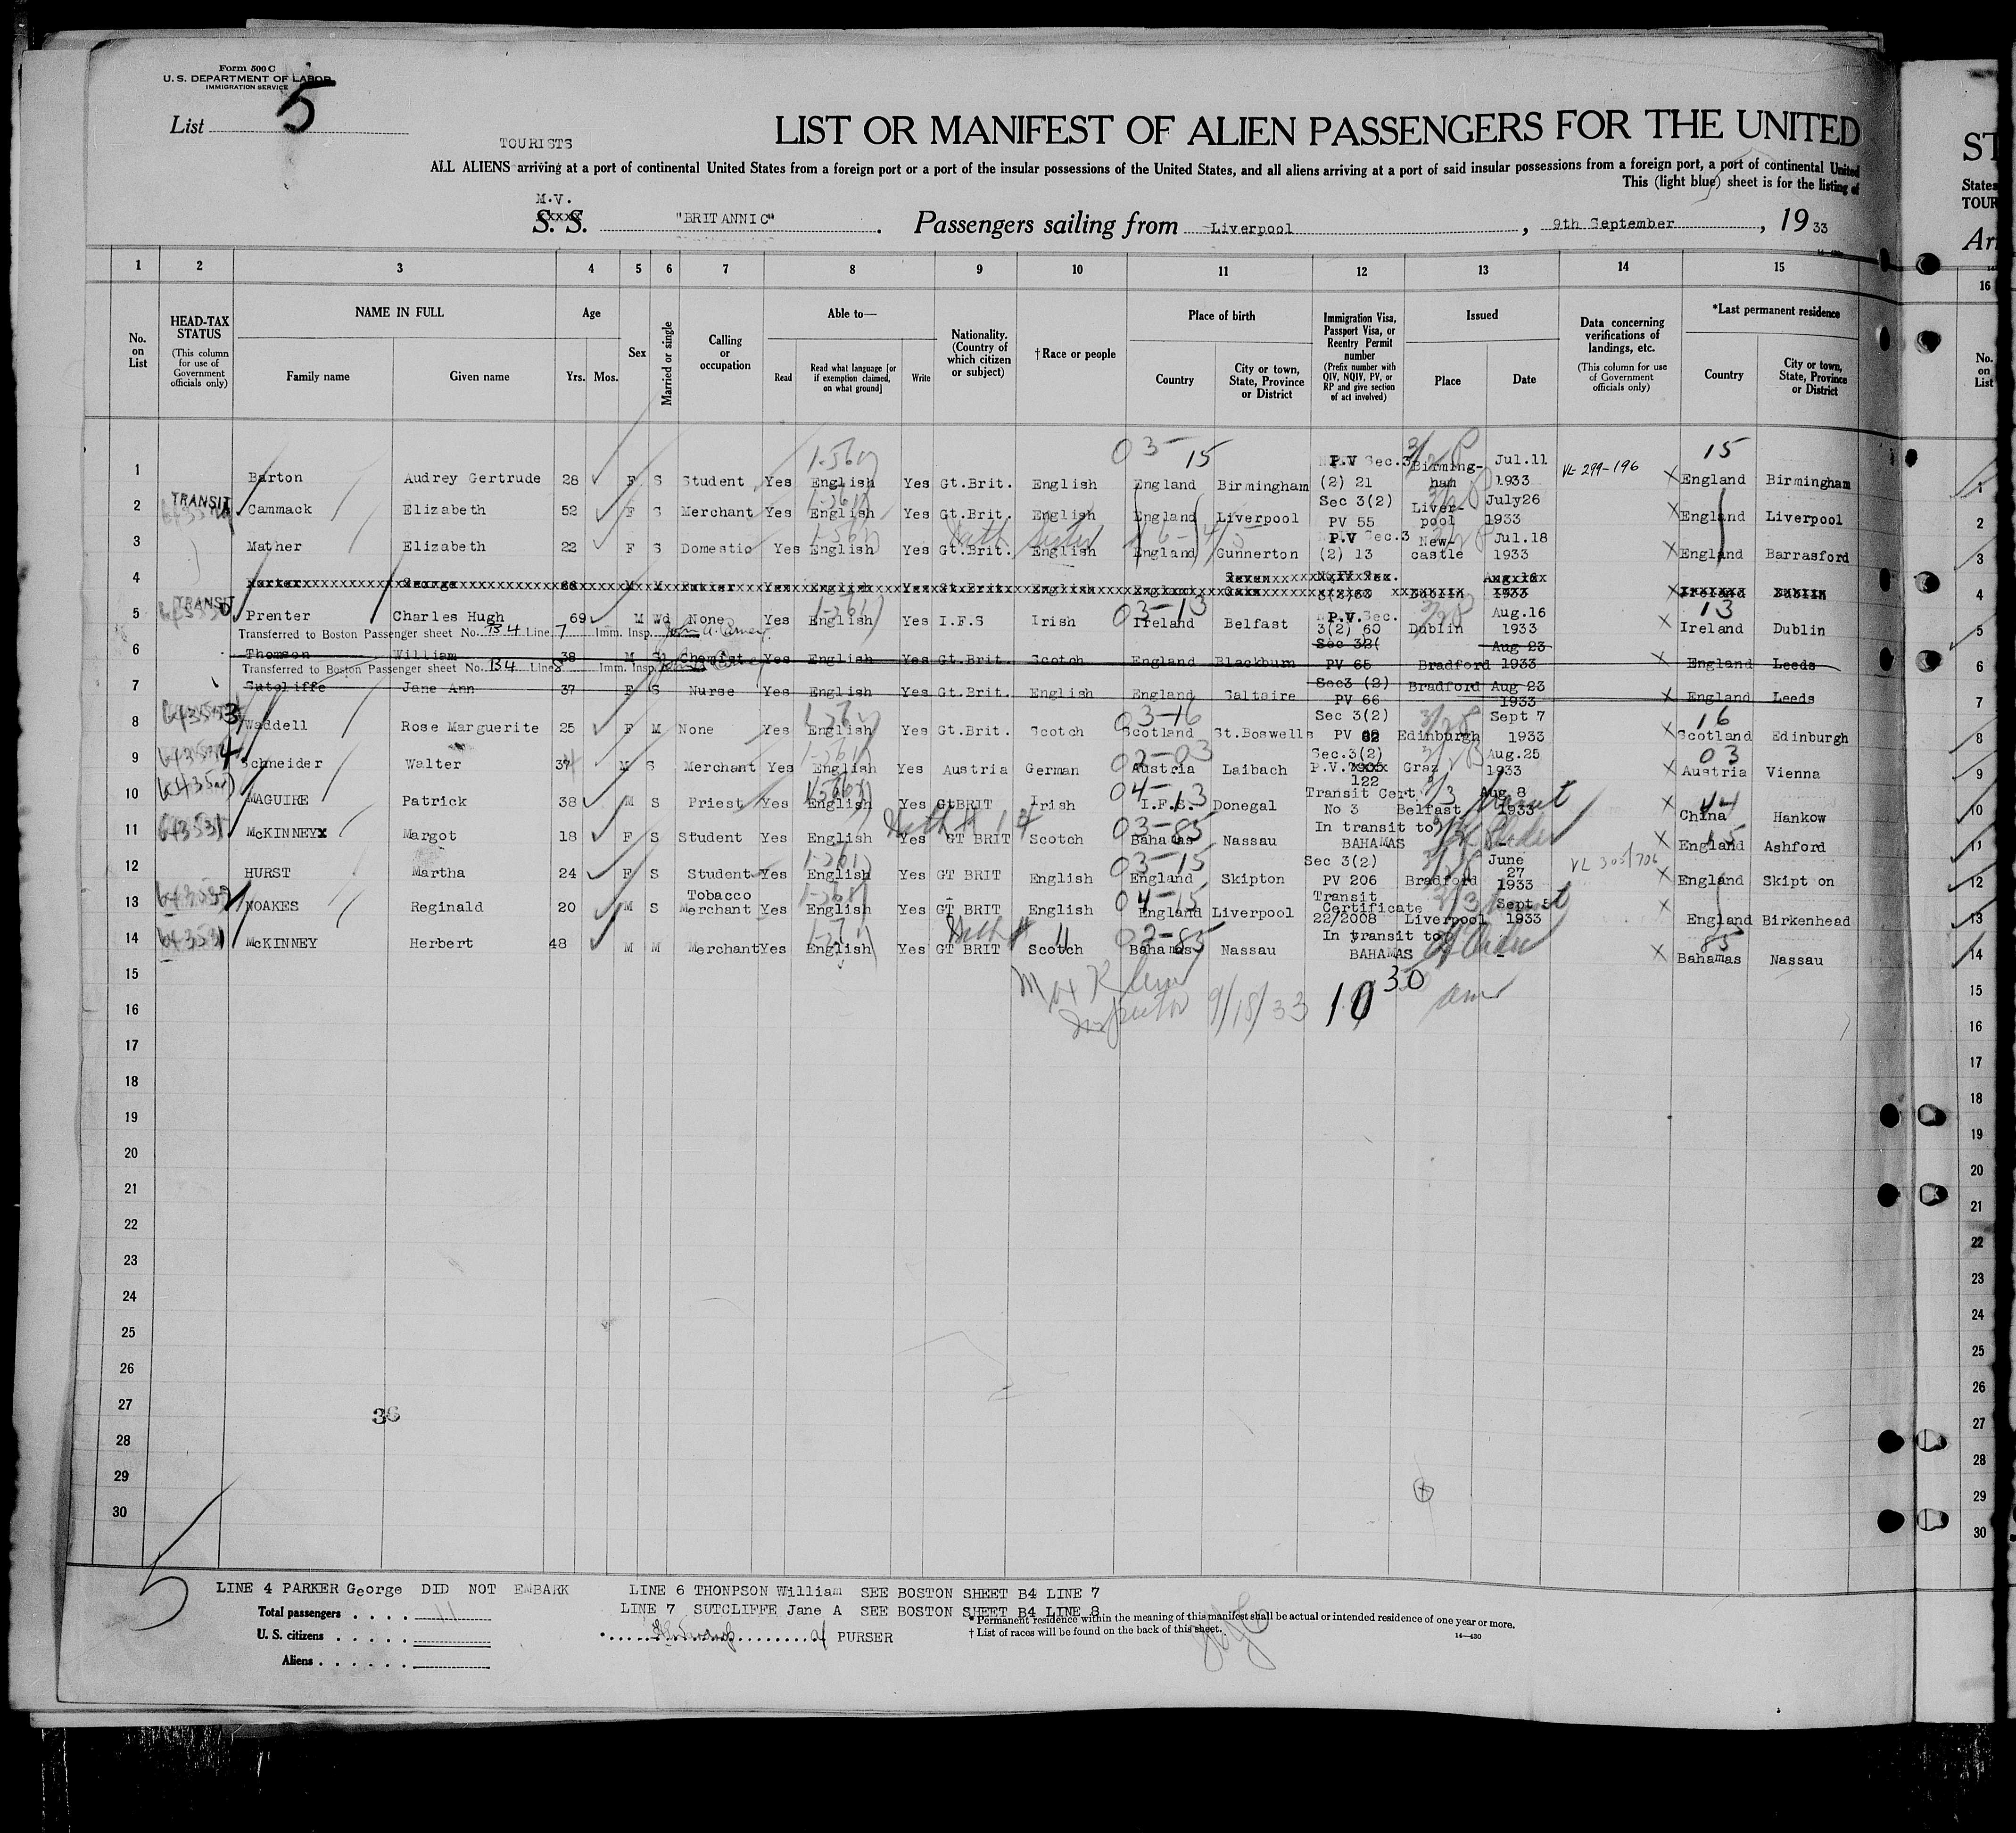 Form 500 C
U. S. DEPARTMENT OF LABOR
IMMIGRATION SERVICE
List 5
TOURISTS
LIST OR MANIFEST OF ALIEN PASSENGERS FOR THE UNITED
ST
ALL ALIENS arriving at a port of continental United States from a foreign port or a port of the insular possessions of the United States, and all aliens arriving at a port of said insular possessions from a foreign port, a port of continental United
States
This (light blue) sheet is for the listing of
TOUR
M.V.
S. S. "BRITANNIC" . Passengers sailing from Liverpool , 9th September , 19 33
Arr
1 2 3 4 5 6 7 8 9 10 11 12 13 14 15 16
No. on List
HEAD-TAX STATUS (This column for use of Government officials only)
NAME IN FULL Family name Given name
Age Yrs. Mos.
Sex
Married or single
Calling or occupation
Able to— Read Read what language [or if exemption claimed, on what ground] Write
Nationality. (Country of which citizen or subject)
†Race or people
Place of birth Country City or town, State, Province or District
Immigration Visa, Passport Visa, or Reentry Permit number (Prefix number with QIV, NQIV, PV, or RP and give section of act involved)
Issued Place Date
Data concerning verifications of landings, etc. (This column for use of Government officials only)
*Last permanent residence Country City or town, State, Province or District
No. on List
03-15 15
1 Barton Audrey Gertrude 28 F S Student Yes English Yes Gt.Brit. English England Birmingham P.V Sec.3 (2) 21 Birming-ham Jul.11 1933 VL 299-196 X England Birmingham 1
2 TRANSIT Cammack Elizabeth 52 F S Merchant Yes English Yes Gt.Brit. English England Liverpool Sec 3(2) PV 55 Liver-pool July26 1933 X England Liverpool 2
3 Mather Elizabeth 22 F S Domestic Yes English Yes Gt.Brit. English England Gunnerton P.V Sec.3 (2) 13 New-castle Jul.18 1933 X England Barrasford 3
4 Parker George M M Yes English Yes Gt.Brit. English England Dublin 1933 X Ireland Dublin 4
5 TRANSIT Prenter Charles Hugh 69 M Wd None Yes English Yes I.F.S Irish 03-13 Ireland Belfast P.V. Sec. 3(2) 60 Dublin Aug.16 1933 X 13 Ireland Dublin 5
Transferred to Boston Passenger sheet No. B4 Line 7 Imm. Insp.
6 Thomson William 38 M Chemist Yes English Yes Gt.Brit. Scotch England Blackburn Sec 32( PV 65 Bradford Aug 23 1933 X England Leeds 6
Transferred to Boston Passenger sheet No. B4 Line 8 Imm. Insp.
7 Sutcliffe Jane Ann 37 F S Nurse Yes English Yes Gt.Brit. English England Saltaire Sec3 (2) PV 66 Bradford Aug 23 1933 X England Leeds 7
8 Waddell Rose Marguerite 25 F M None Yes English Yes Gt.Brit. Scotch 03-16 Scotland St.Boswells Sec 3(2) PV 82 Edinburgh Sept 7 1933 X 16 Scotland Edinburgh 8
9 Schneider Walter 37 M S Merchant Yes English Yes Austria German 02-03 Austria Laibach Sec.3(2) P.V. 122 Graz Aug.25 1933 X 03 Austria Vienna 9
10 MAGUIRE Patrick 38 M S Priest Yes English Yes GtBRIT Irish 04-13 I.F.S. Donegal Transit Cert. No 3 Belfast Aug 8 1933 X 44 China Hankow 10
11 McKINNEY Margot 18 F S Student Yes English Yes GT BRIT Scotch 03-85 Bahamas Nassau In transit to BAHAMAS - X 15 England Ashford 11
12 HURST Martha 24 F S Student Yes English Yes GT BRIT English 03-15 England Skipton Sec 3(2) PV 206 Bradford June 27 1933 VL 305/706 X England Skipt on 12
13 NOAKES Reginald 20 M S Tobacco Merchant Yes English Yes GT BRIT English 04-15 England Liverpool Transit Certificate 22/2008 Liverpool Sept 5 1933 X England Birkenhead 13
14 McKINNEY Herbert 48 M M Merchant Yes English Yes GT BRIT Scotch 02-85 Bahamas Nassau In transit to BAHAMAS - X 85 Bahamas Nassau 14
15 15
16 Inspector 9/18/33 10 30 am 16
17 17
18 18
19 19
20 20
21 21
22 22
23 23
24 24
25 25
26 26
27 36 27
28 28
29 29
30 30
5
LINE 4 PARKER George DID NOT EMBARK LINE 6 THONPSON William SEE BOSTON SHEET B4 LINE 7
Total passengers . . . . 11 LINE 7 SUTCLIFFE Jane A SEE BOSTON SHEET B4 LINE 8
* Permanent residence within the meaning of this manifest shall be actual or intended residence of one year or more.
U. S. citizens . . . . . PURSER † List of races will be found on the back of this sheet. 14—430
Aliens . . . . . .